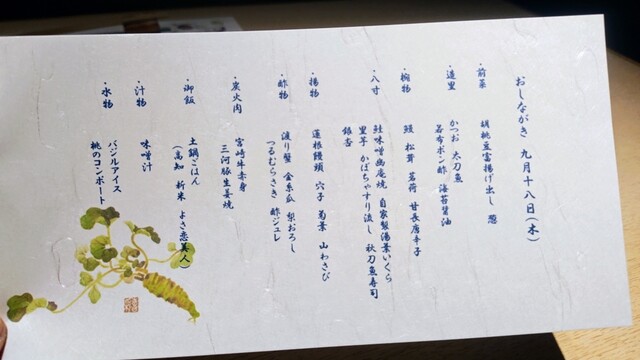 おしながき 九月十八日(木)
・前菜
胡桃豆富揚げ出し 葱
・造里
かつお 太刀魚
昆布ポン酢 海苔醤油
・椀物
鱧 松茸 茗荷 甘長唐辛子
・八寸
鮭味噌幽庵焼 自家製湯葉いくら
里芋 かぼちゃすり流し 秋刀魚寿司
銀杏
・揚物
蓮根饅頭 穴子 菊葉 山わさび
・酢物
渡り蟹 金糸瓜 梨おろし
つるむらさき 酢ジュレ
・炭火肉
宮崎牛赤身
三河豚生姜焼
・御飯
土鍋ごはん
(高知 新米 よさ恋美人)
・汁物
味噌汁
・水物
バジルアイス
桃のコンポート